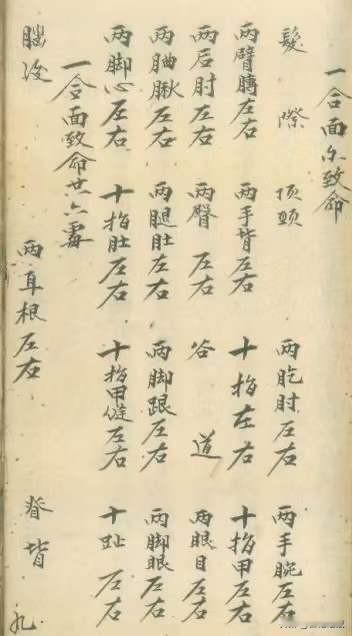 一合面不致命
髮際 項頸 兩肐肘左右 兩手腕左右
兩臂膊左右 兩手背左右 十指左右 十指甲左右
兩后肘左右 兩臀左右 谷道 兩眼目左右
兩左右 兩腿肚左右 兩脚跟左右 兩脚眼左右
兩脚心左右 十指肚左右 十指甲縫左右 十趾左右
一合面致命廿六處
腦後 兩耳根左右 脊背